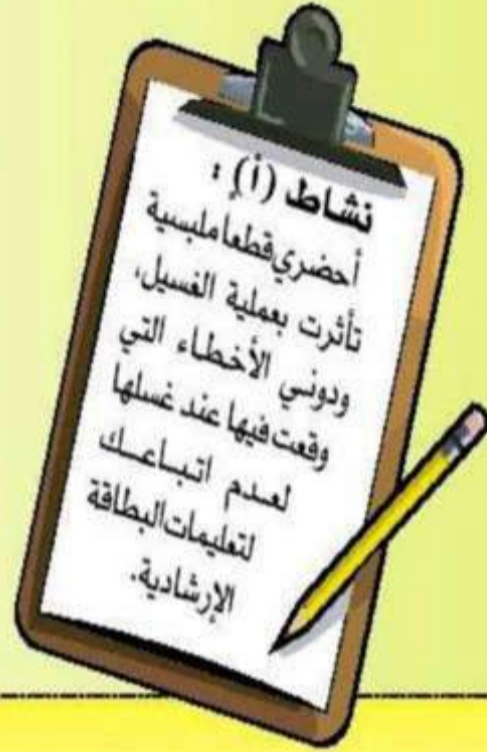 نشاط (أ) :
أحضري قطعا ملبسية
تأثرت بعملية الغسيل،
ودوني الأخطاء التي
وقعت فيها عند غسلها
لعدم اتباعك
لتعليمات البطاقة
الإرشادية.